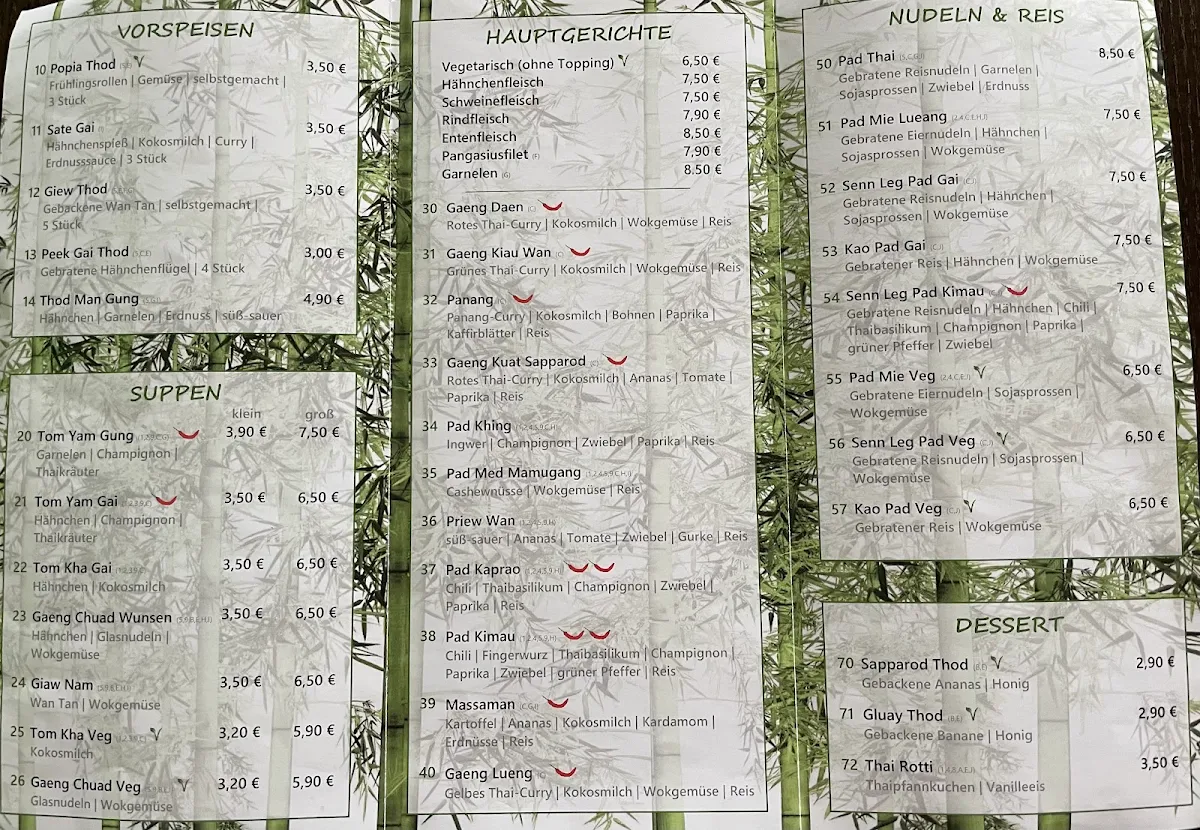 VORSPEISEN
10 Popia Thod 3,50 €
Frühlingsrollen | Gemüse | selbstgemacht |
3 Stück
11 Sate Gai 3,50 €
Hähnchenspieß | Kokosmilch | Curry |
Erdnusssauce | 3 Stück
12 Giew Thod 3,50 €
Gebackene Wan Tan | selbstgemacht |
5 Stück
13 Peek Gai Thod 3,00 €
Gebratene Hähnchenflügel | 4 Stück
14 Thod Man Gung 4,90 €
Hähnchen | Garnelen | Erdnuss | süß-sauer
SUPPEN
klein groß
20 Tom Yam Gung 3,90 € 7,50 €
Garnelen | Champignon |
Thaikräuter
21 Tom Yam Gai 3,50 € 6,50 €
Hähnchen | Champignon |
Thaikräuter
22 Tom Kha Gai 3,50 € 6,50 €
Hähnchen | Kokosmilch
23 Gaeng Chuad Wunsen 3,50 € 6,50 €
Hähnchen | Glasnudeln |
Wokgemüse
24 Giaw Nam 3,50 € 6,50 €
Wan Tan | Wokgemüse
25 Tom Kha Veg 3,20 € 5,90 €
Kokosmilch
26 Gaeng Chuad Veg 3,20 € 5,90 €
Glasnudeln | Wokgemüse
HAUPTGERICHTE
Vegetarisch (ohne Topping) 6,50 €
Hähnchenfleisch 7,50 €
Schweinefleisch 7,50 €
Rindfleisch 7,90 €
Entenfleisch 8,50 €
Pangasiusfilet (F) 7,90 €
Garnelen (G) 8.50 €
30 Gaeng Daen
Rotes Thai-Curry | Kokosmilch | Wokgemüse | Reis
31 Gaeng Kiau Wan
Grünes Thai-Curry | Kokosmilch | Wokgemüse | Reis
32 Panang
Panang-Curry | Kokosmilch | Bohnen | Paprika |
Kaffirblätter | Reis
33 Gaeng Kuat Sapparod
Rotes Thai-Curry | Kokosmilch | Ananas | Tomate |
Paprika | Reis
34 Pad Khing (1,2,4,5,9,C,H)
Ingwer | Champignon | Zwiebel | Paprika | Reis
35 Pad Med Mamugang
Cashewnüsse | Wokgemüse | Reis
36 Priew Wan
süß-sauer | Ananas | Tomate | Zwiebel | Gurke | Reis
37 Pad Kaprao (1,2,4,5,9,H)
Chili | Thaibasilikum | Champignon | Zwiebel |
Paprika | Reis
38 Pad Kimau (1,2,4,5,9,H)
Chili | Fingerwurz | Thaibasilikum | Champignon |
Paprika | Zwiebel | grüner Pfeffer | Reis
39 Massaman
Kartoffel | Ananas | Kokosmilch | Kardamom |
Erdnüsse | Reis
40 Gaeng Lueng
Gelbes Thai-Curry | Kokosmilch | Wokgemüse | Reis
NUDELN & REIS
50 Pad Thai 8,50 €
Gebratene Reisnudeln | Garnelen |
Sojasprossen | Zwiebel | Erdnuss
51 Pad Mie Lueang 7,50 €
Gebratene Eiernudeln | Hähnchen |
Sojasprossen | Wokgemüse
52 Senn Leg Pad Gai 7,50 €
Gebratene Reisnudeln | Hähnchen |
Sojasprossen | Wokgemüse
53 Kao Pad Gai 7,50 €
Gebratener Reis | Hähnchen | Wokgemüse
54 Senn Leg Pad Kimau 7,50 €
Gebratene Reisnudeln | Hähnchen | Chili |
Thaibasilikum | Champignon | Paprika |
grüner Pfeffer | Zwiebel
55 Pad Mie Veg 6,50 €
Gebratene Eiernudeln | Sojasprossen |
Wokgemüse
56 Senn Leg Pad Veg 6,50 €
Gebratene Reisnudeln | Sojasprossen |
Wokgemüse
57 Kao Pad Veg 6,50 €
Gebratener Reis | Wokgemüse
DESSERT
70 Sapparod Thod 2,90 €
Gebackene Ananas | Honig
71 Gluay Thod 2,90 €
Gebackene Banane | Honig
72 Thai Rotti 3,50 €
Thaipfannkuchen | Vanilleeis